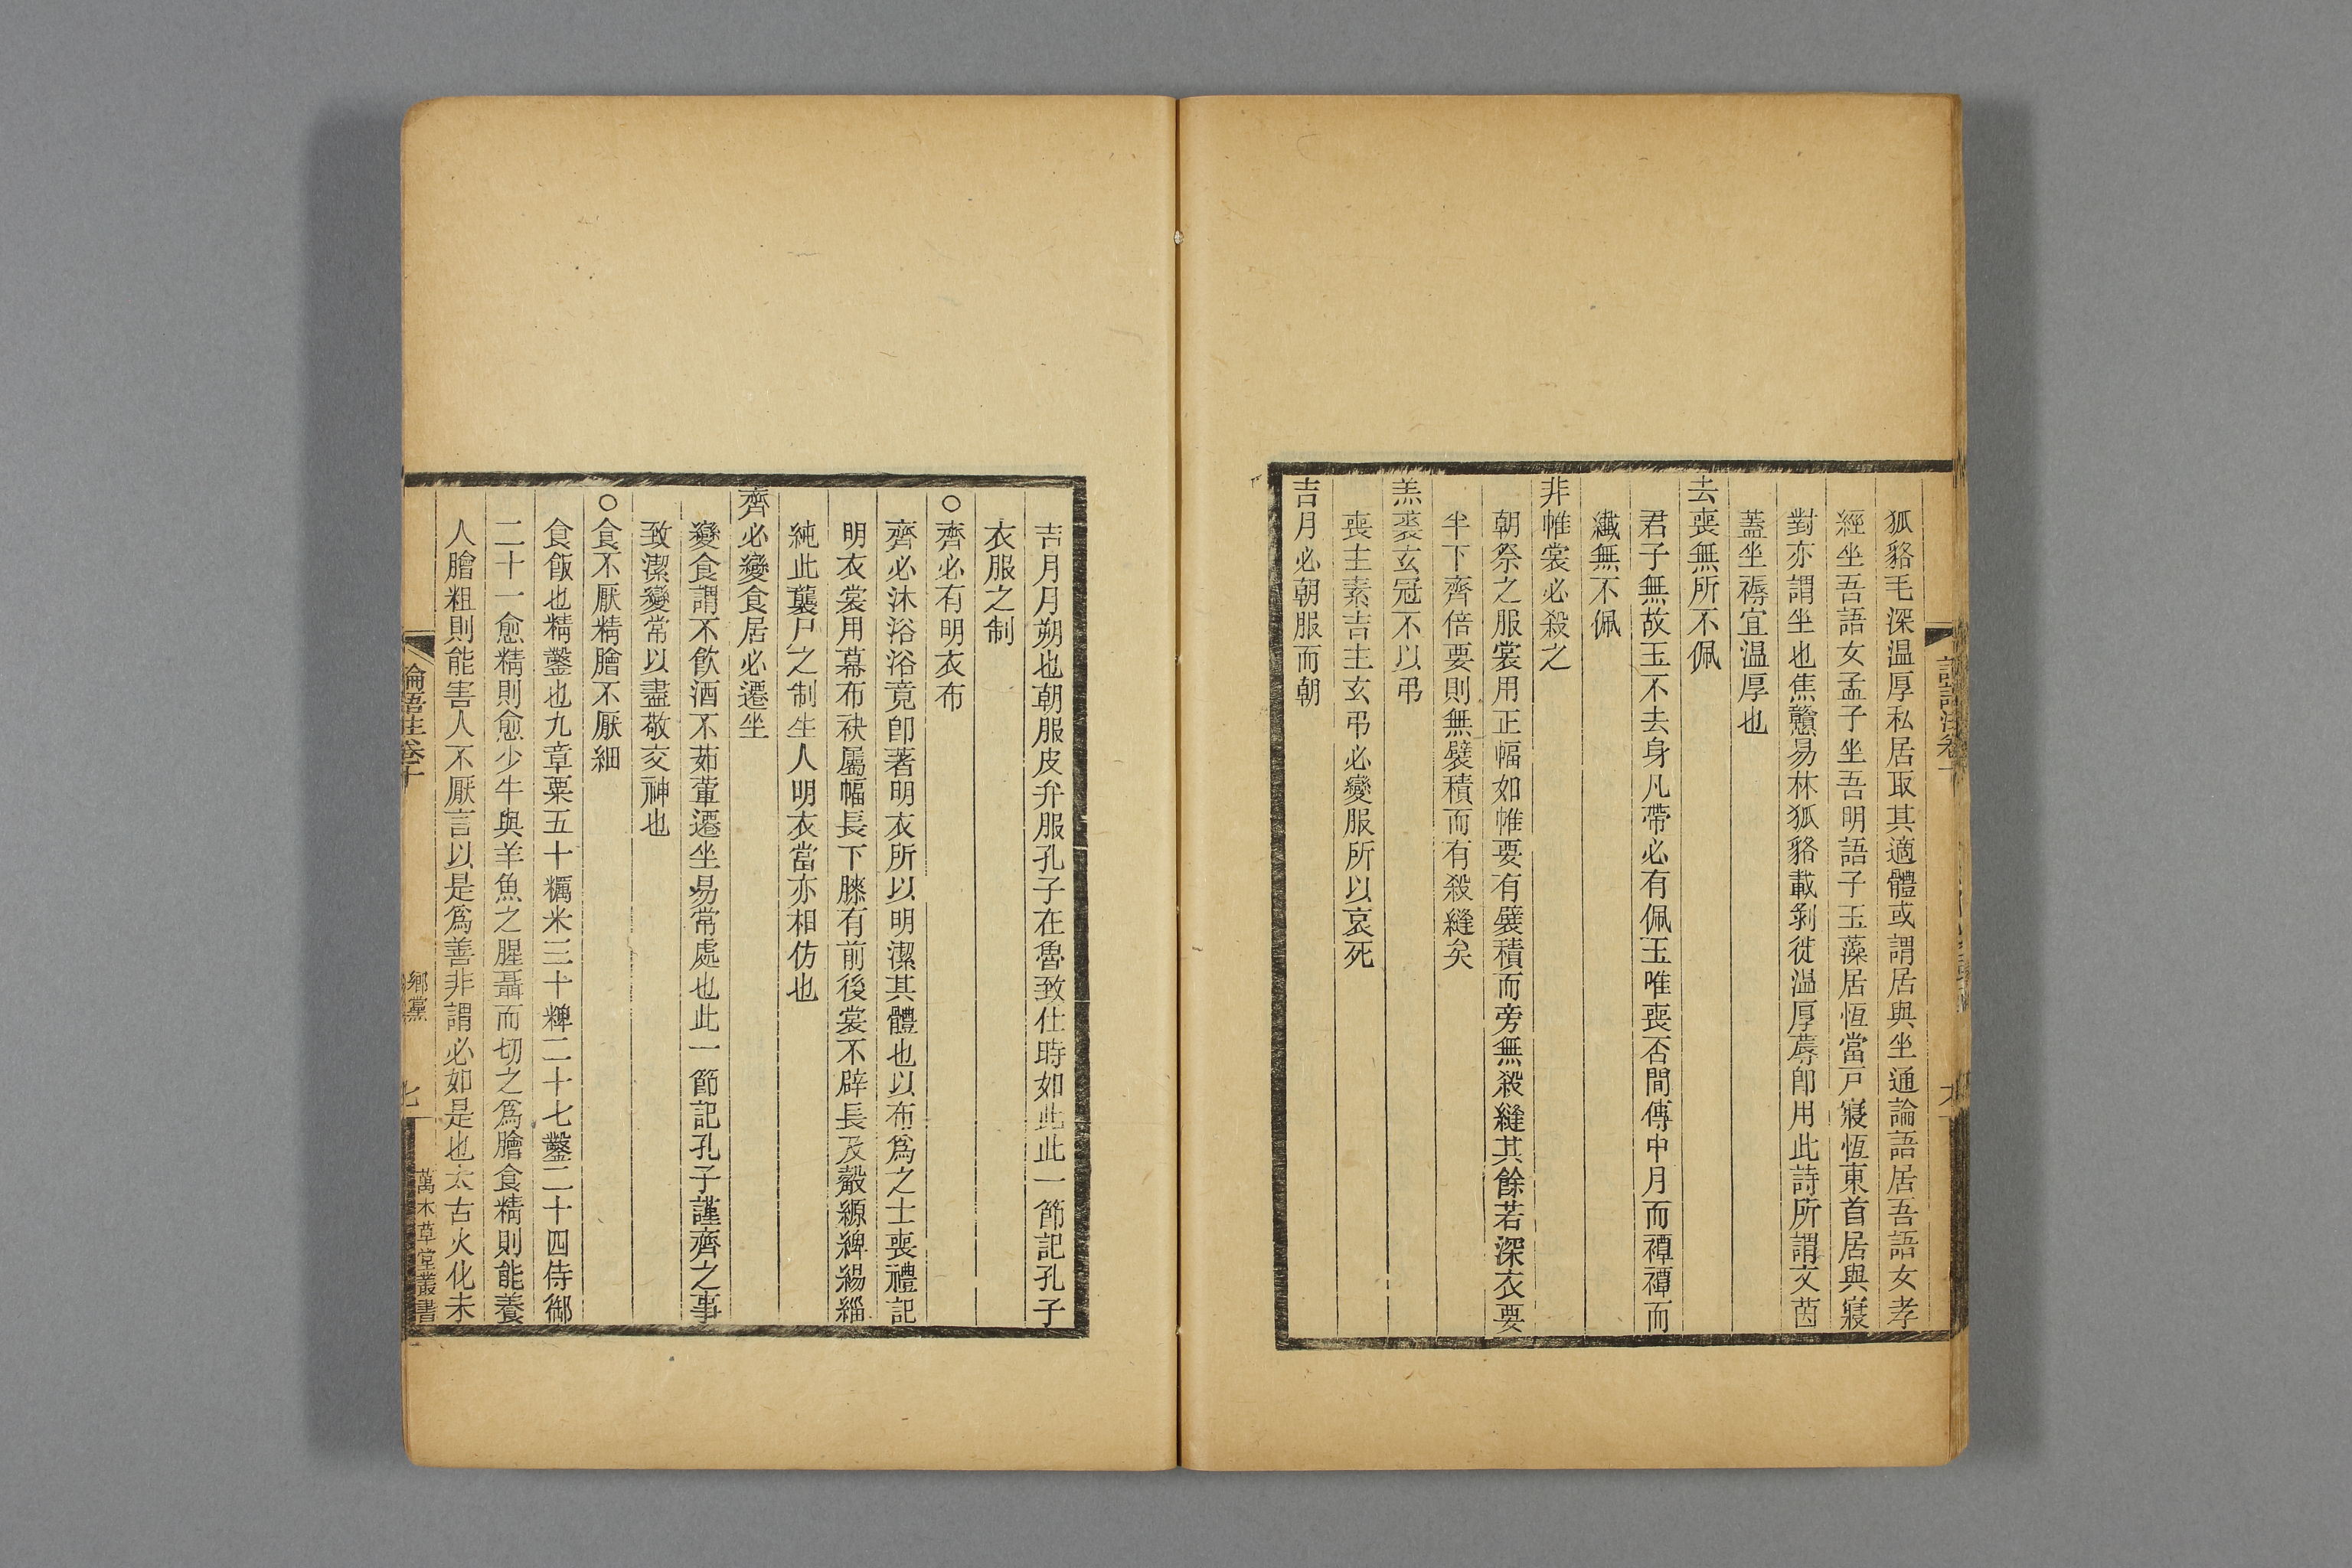 狐貉毛深温厚私居取其適體或謂居與坐通論語居吾語女孝
經坐吾語女孟子坐吾明語子玉藻居恆當戸寢恆東首居與寢
對亦謂坐也焦贛易林狐貉載剝徙温厚蓐卽用此詩所謂文茵
蓋坐褥宜温厚也
去喪無所不佩
君子無故玉不去身凡帶必有佩玉唯喪否間傳中月而禫禫而
纖無不佩
非帷裳必殺之
朝祭之服裳用正幅如帷要有襞積而旁無殺縫其餘若深衣要
半下齊倍要則無襞積而有殺縫矣
羔裘玄冠不以弔
喪主素吉主玄弔必變服所以哀死
吉月必朝服而朝
吉月月朔也朝服皮弁服孔子在魯致仕時如此此一節記孔子
衣服之制
○齊必有明衣布
齊必沐浴浴竟卽著明衣所以明潔其體也以布爲之士喪禮記
明衣裳用幕布袂屬幅長下膝有前後裳不辟長及觳縓綼緆緇
純此襲尸之制生人明衣當亦相仿也
齊必變食居必遷坐
變食謂不飮酒不茹葷遷坐易常處也此一節記孔子謹齊之事
致潔變常以盡敬交神也
○食不厭精膾不厭細
食飯也精鑿也九章粟五十糲米三十粺二十七鑿二十四侍御
二十一愈精則愈少牛與羊魚之腥聶而切之爲膾食精則能養
人膾粗則能害人不厭言以是爲善非謂必如是也太古火化未
論語注卷十
鄉黨
七
萬木草堂叢書